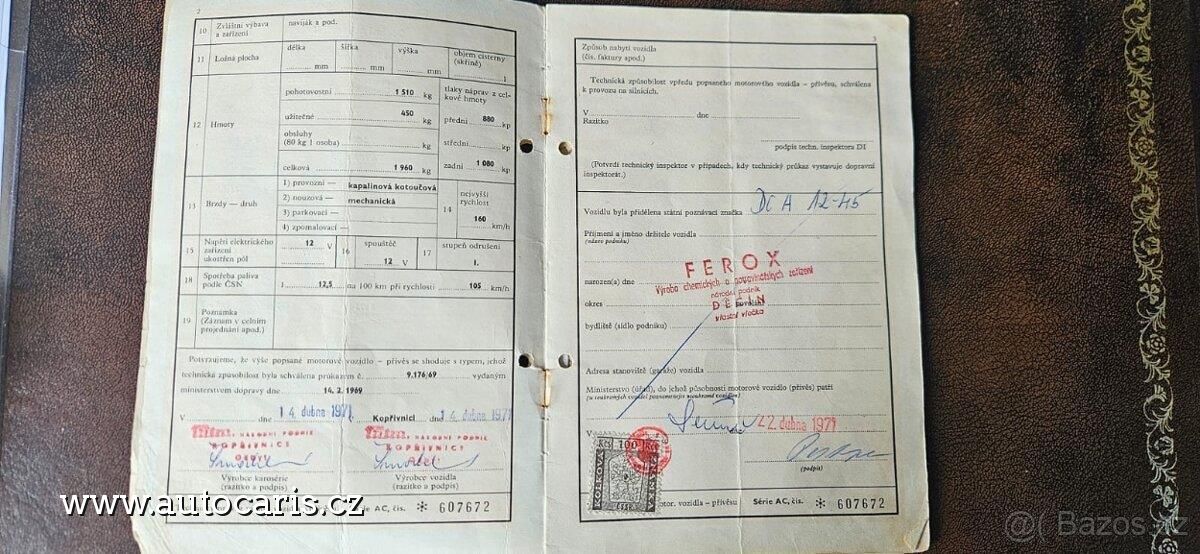 2
10 Zvláštní výbava a zařízení naviják a pod.
11 Ložná plocha délka mm šířka mm výška mm objem cisterny (skříně) l
12 Hmoty
pohotovostní — 1 510 kg
užitečné 450 kg
obsluhy (80 kg 1 osoba) kg
celková 1 960 kg
tlaky náprav z celkové hmoty
přední 880 kp
střední kp
zadní 1 080 kp
13 Brzdy — druh
1) provozní — kapalinová kotoučová
2) nouzová — mechanická
3) parkovací —
4) zpomalovací —
14 nejvyšší rychlost 160 km/h
15 Napětí elektrického zařízení ukostřen pól 12 V
16 spouštěč 12 V
17 stupeň odrušení I.
18 Spotřeba paliva podle ČSN l 12,5 na 100 km při rychlosti 105 km/h
19 Poznámka (Záznam v celním projednání apod.)
Potvrzujeme, že výše popsané motorové vozidlo – přívěs se shoduje s typem, jehož
technická způsobilost byla schválena průkazem č. 9.176/69 vydaným
ministerstvem dopravy dne 14. 2. 1969
V dne 14. dubna 1971 Kopřivnici dne 14. dubna 1971
NÁRODNÍ PODNIK
KOPŘIVNICE
NÁRODNÍ PODNIK
KOPŘIVNICE
Výrobce karosérie
(razítko a podpis)
Výrobce vozidla
(razítko a podpis)
Série AC, čís. * 607672
3
Způsob nabytí vozidla
(čís. faktury apod.)
Technická způsobilost vpředu popsaného motorového vozidla – přívěsu, schválena
k provozu na silnicích.
V dne
Razítko
podpis techn. inspektora DI
(Potvrdí technický inspektor v případech, kdy technický průkaz vystavuje dopravní
inspektorát.)
Vozidlu byla přidělena státní poznávací značka DC A 12-45
Příjmení a jméno držitele vozidla
(název podniku)
FEROX
Výroba chemických a potravinářských zařízení
národní podnik
DĚČÍN
vlastní vlečka
narozen(a) dne
okres
bydliště (sídlo podniku)
Adresa stanoviště (garáže) vozidla
Ministerstvo (úřad), do jehož působnosti motorové vozidlo (přívěs) patří
V 22. dubna 1971
(podpis)
100 Kčs
KOLKOVÁ
ČSSR
motor. vozidla – přívěsu Série AC, čís. * 607672
www.autocaris.cz
@( Bazos.cz